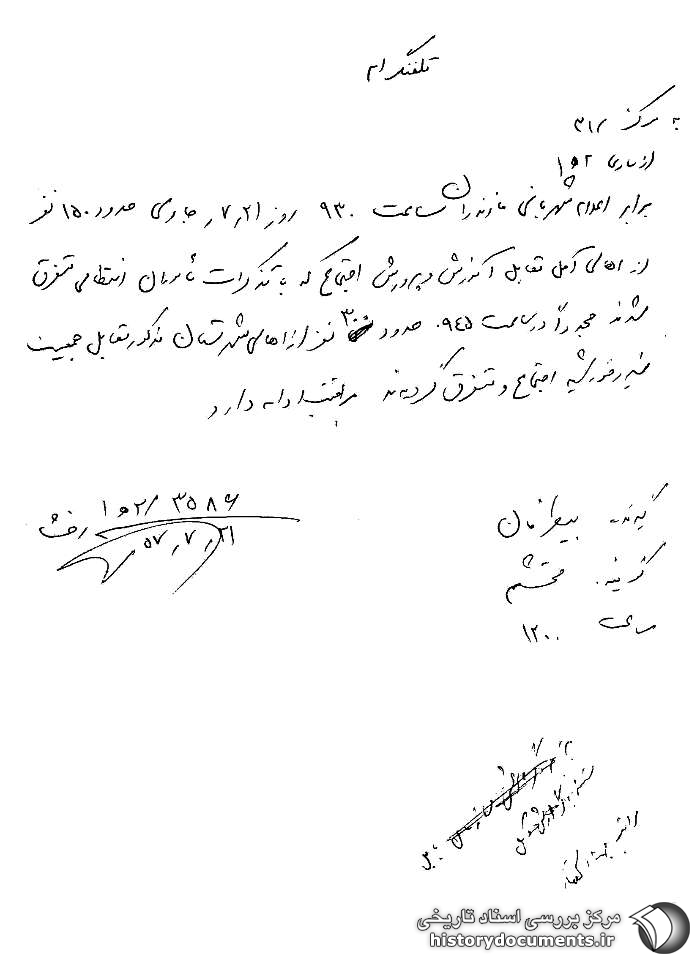 تلفنگرام
به مرکز ۳۱۲
از ساری ۱ﻫ۲
برابر اعلام شهربانی مازندران ساعت ۹۳۰ روز ۷٫۲۱ جاری حدود ۱۵۰ نفر
از اهالی آمل مقابل آموزش و پرورش اجتماع که با تذکرات مأموران انتظامی متفرق
شدند مجدداً در ساعت ۹۴۵ حدود ۳۰۰ نفر از اهالی شهرستان مذکور مقابل جمعیت
شیر و خورشید اجتماع و متفرق گردیدند مراقبت ادامه دارد
۱ﻫ۲/۳۵۸۶
۵۷٫۷٫۲۱
گیرنده
گوینده محتشم
ساعت ۱۲۰۰
مرکز بررسی اسناد تاریخی
historydocuments.ir